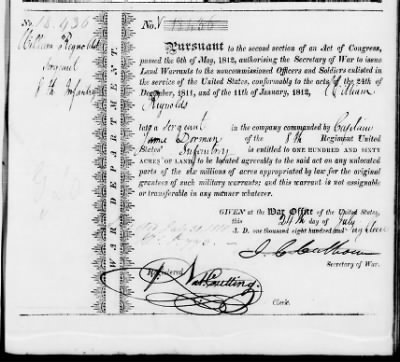 No. 18,436
William Reynolds
Sergeant
8th Infantry
WAR DEPARTMENT.
No.
Pursuant to the second section of an Act of Congress,
passed the 6th of May, 1812, authorising the Secretary of War to issue
Land Warrants to the noncommissioned Officers and Soldiers enlisted in
the service of the United States, conformably to the acts of the 24th
December, 1811, and of the 11th of January, 1812, William
Reynolds
late a Sergeant in the company commanded by Captain
James Dorman of the 8th Regiment United
States' Infantry is entitled to ONE HUNDRED AND SIXTY
ACRES OF LAND, to be located agreeably to the said act on any unlocated
parts of the six millions of acres appropriated by law for the original
grantees of such military warrants; and this warrant is not assignable
or transferable in any manner whatever.
GIVEN at the War Office of the United States,
this 24th day of July
A. D. one thousand eight hundred and
J. C. Calhoun
Secretary of War.
Registered
Nath Cutting
Clerk.